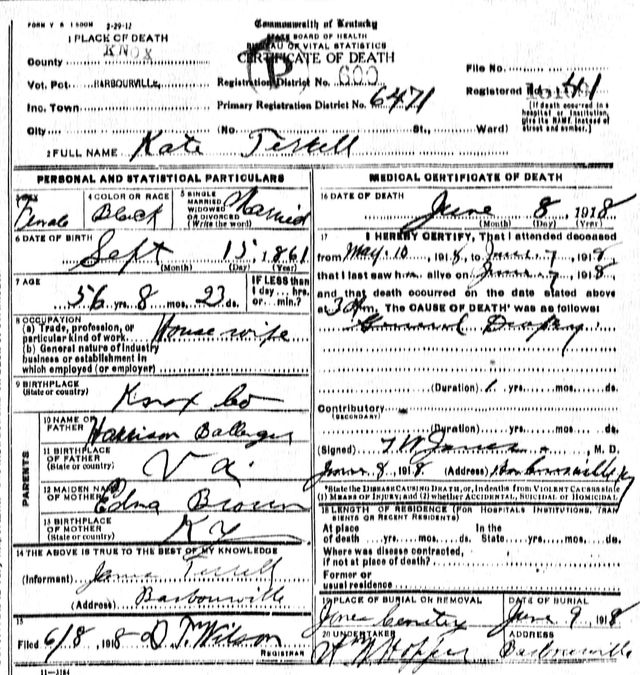 FORM V. S. 1-29-12
Commonwealth of Kentucky
STATE BOARD OF HEALTH
BUREAU OF VITAL STATISTICS
CERTIFICATE OF DEATH
1 PLACE OF DEATH
County KNOX
Vot. Pct. BARBOURVILLE
Inc. Town
City
P
Registration District No. 600
Primary Registration District No. 6471
(No. St., Ward)
File No.
Registered No. 41
(If death occurred in a hospital or institution, give its NAME instead of street and number.)
2 FULL NAME Kate Terrell
PERSONAL AND STATISTICAL PARTICULARS
SEX Female
4 COLOR OR RACE Black
5 SINGLE MARRIED WIDOWED OR DIVORCED (Write the word) Married
6 DATE OF BIRTH Sept 15, 1861
(Month) (Day) (Year)
7 AGE 56 yrs. 8 mos. 23 ds.
IF LESS than 1 day... hrs. or... min.?
8 OCCUPATION
(a) Trade, profession, or particular kind of work. House wife
(b) General nature of industry business or establishment in which employed (or employer)
9 BIRTHPLACE (State or country) Knox Co
PARENTS
10 NAME OF FATHER Harrison Ballenger
11 BIRTHPLACE OF FATHER (State or country) Va.
12 MAIDEN NAME OF MOTHER Edna Brown
13 BIRTHPLACE OF MOTHER (State or country) KY
14 THE ABOVE IS TRUE TO THE BEST OF MY KNOWLEDGE
(Informant) Terrell
(Address) Barbourville
15
Filed 6/8, 1918 D T Wilson
REGISTRAR
11-3184
MEDICAL CERTIFICATE OF DEATH
16 DATE OF DEATH June 8, 1918
(Month) (Day) (Year)
17 I HEREBY CERTIFY, That I attended deceased
from May-10, 1918, to June 7, 1918,
that I last saw h alive on June 7, 1918,
and that death occurred on the date stated above
at 3 m. The CAUSE OF DEATH* was as follows:
General Dropsy
(Duration) 1 yrs. mos. ds.
Contributory (SECONDARY)
(Duration) yrs. mos. ds.
(Signed) T W Jones, M. D.
June 8, 1918 (Address) Barbourville Ky
*State the DISEASE CAUSING DEATH, or, in deaths from VIOLENT CAUSES state (1) MEANS OF INJURY; and (2) whether ACCIDENTAL, SUICIDAL or HOMICIDAL.
18 LENGTH OF RESIDENCE (FOR HOSPITALS INSTITUTIONS, TRANSIENTS OR RECENT RESIDENTS)
At place of death yrs. mos. ds. In the State yrs. mos. ds.
Where was disease contracted, if not at place of death?
Former or usual residence
19 PLACE OF BURIAL OR REMOVAL Jones Cemetery
DATE OF BURIAL June 9, 1918
20 UNDERTAKER Hopper
ADDRESS Barbourville